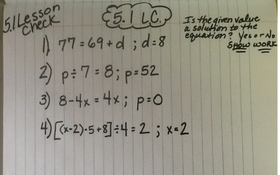 5.1 Lesson Check
5.1 L.C.
Is the given value
a solution to the
equation? Yes or No
Show Work
1) 77 = 69 + d ; d = 8
2) p ÷ 7 = 8 ; p = 52
3) 8 - 4x = 4x ; p = 0
4) [(x-2)·5+8] ÷ 4 = 2 ; x = 2